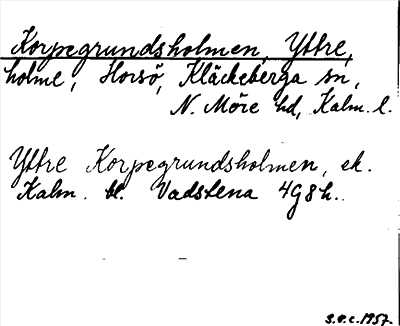 Korpegrundsholmen, Yttre,
holme, Horsö, Kläckeberga sn,
N. Möre hd, Kalm. l.
Yttre Korpegrundsholmen, ek.
Kalm. bl. Vadstena 4g8h.
s.o.c. 1957.